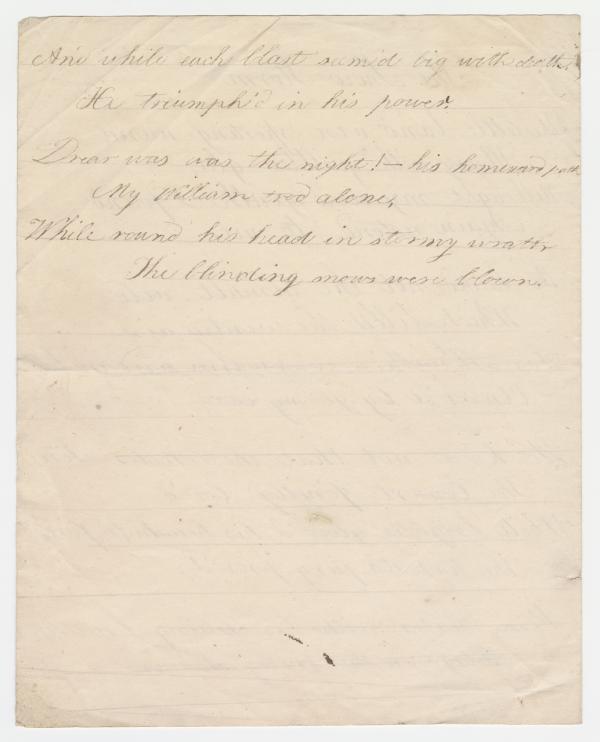 And while each blast seem'd big with death,
He triumph'd in his power.
Drear was was the night! — his homeward path
My William trod alone,
While round his head in stormy wrath
The blinding snows were blown.